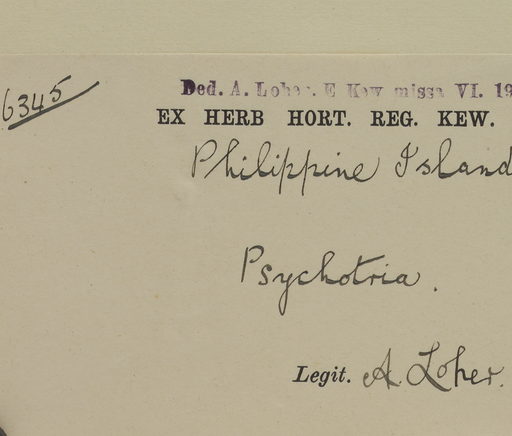 6345
Ded. A. Loher. E Kew missa VI. 19
EX HERB HORT. REG. KEW.
Philippine Island
Psychotria.
Legit. A. Loher.